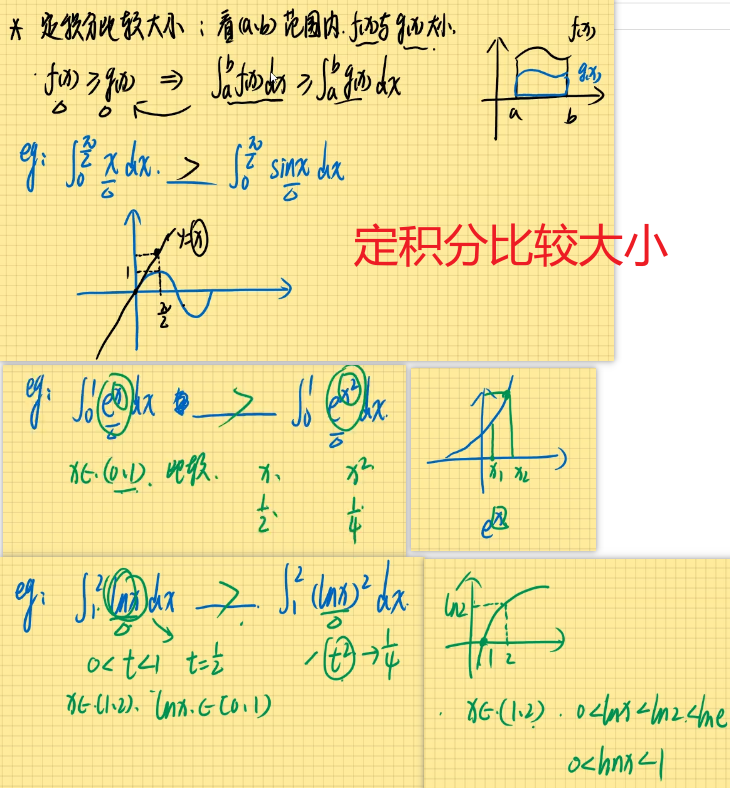 * 定积分比较大小：看(a,b)范围内. f(x)与g(x)大小.
f(x) ≥ g(x) ⇒ ∫_a^b f(x)dx ≥ ∫_a^b g(x)dx
f(x)
g(x)
a b
eg: ∫_0^{π/2} x dx. > ∫_0^{π/2} sinx dx
y=x
1
π/2
定积分比较大小
eg: ∫_0^1 e^x dx > ∫_0^1 e^{x^2} dx.
x∈(0,1). 比较. x、 x^2
1/2、 1/4
x_1 x_2
e^x
eg: ∫_1^2 lnx dx > ∫_1^2 (lnx)^2 dx.
0<t<1 t=1/2 t^2→1/4
x∈(1,2). lnx.∈(0,1)
ln2
1 2
x∈(1,2). 0<lnx<ln2<lne
0<lnx<1